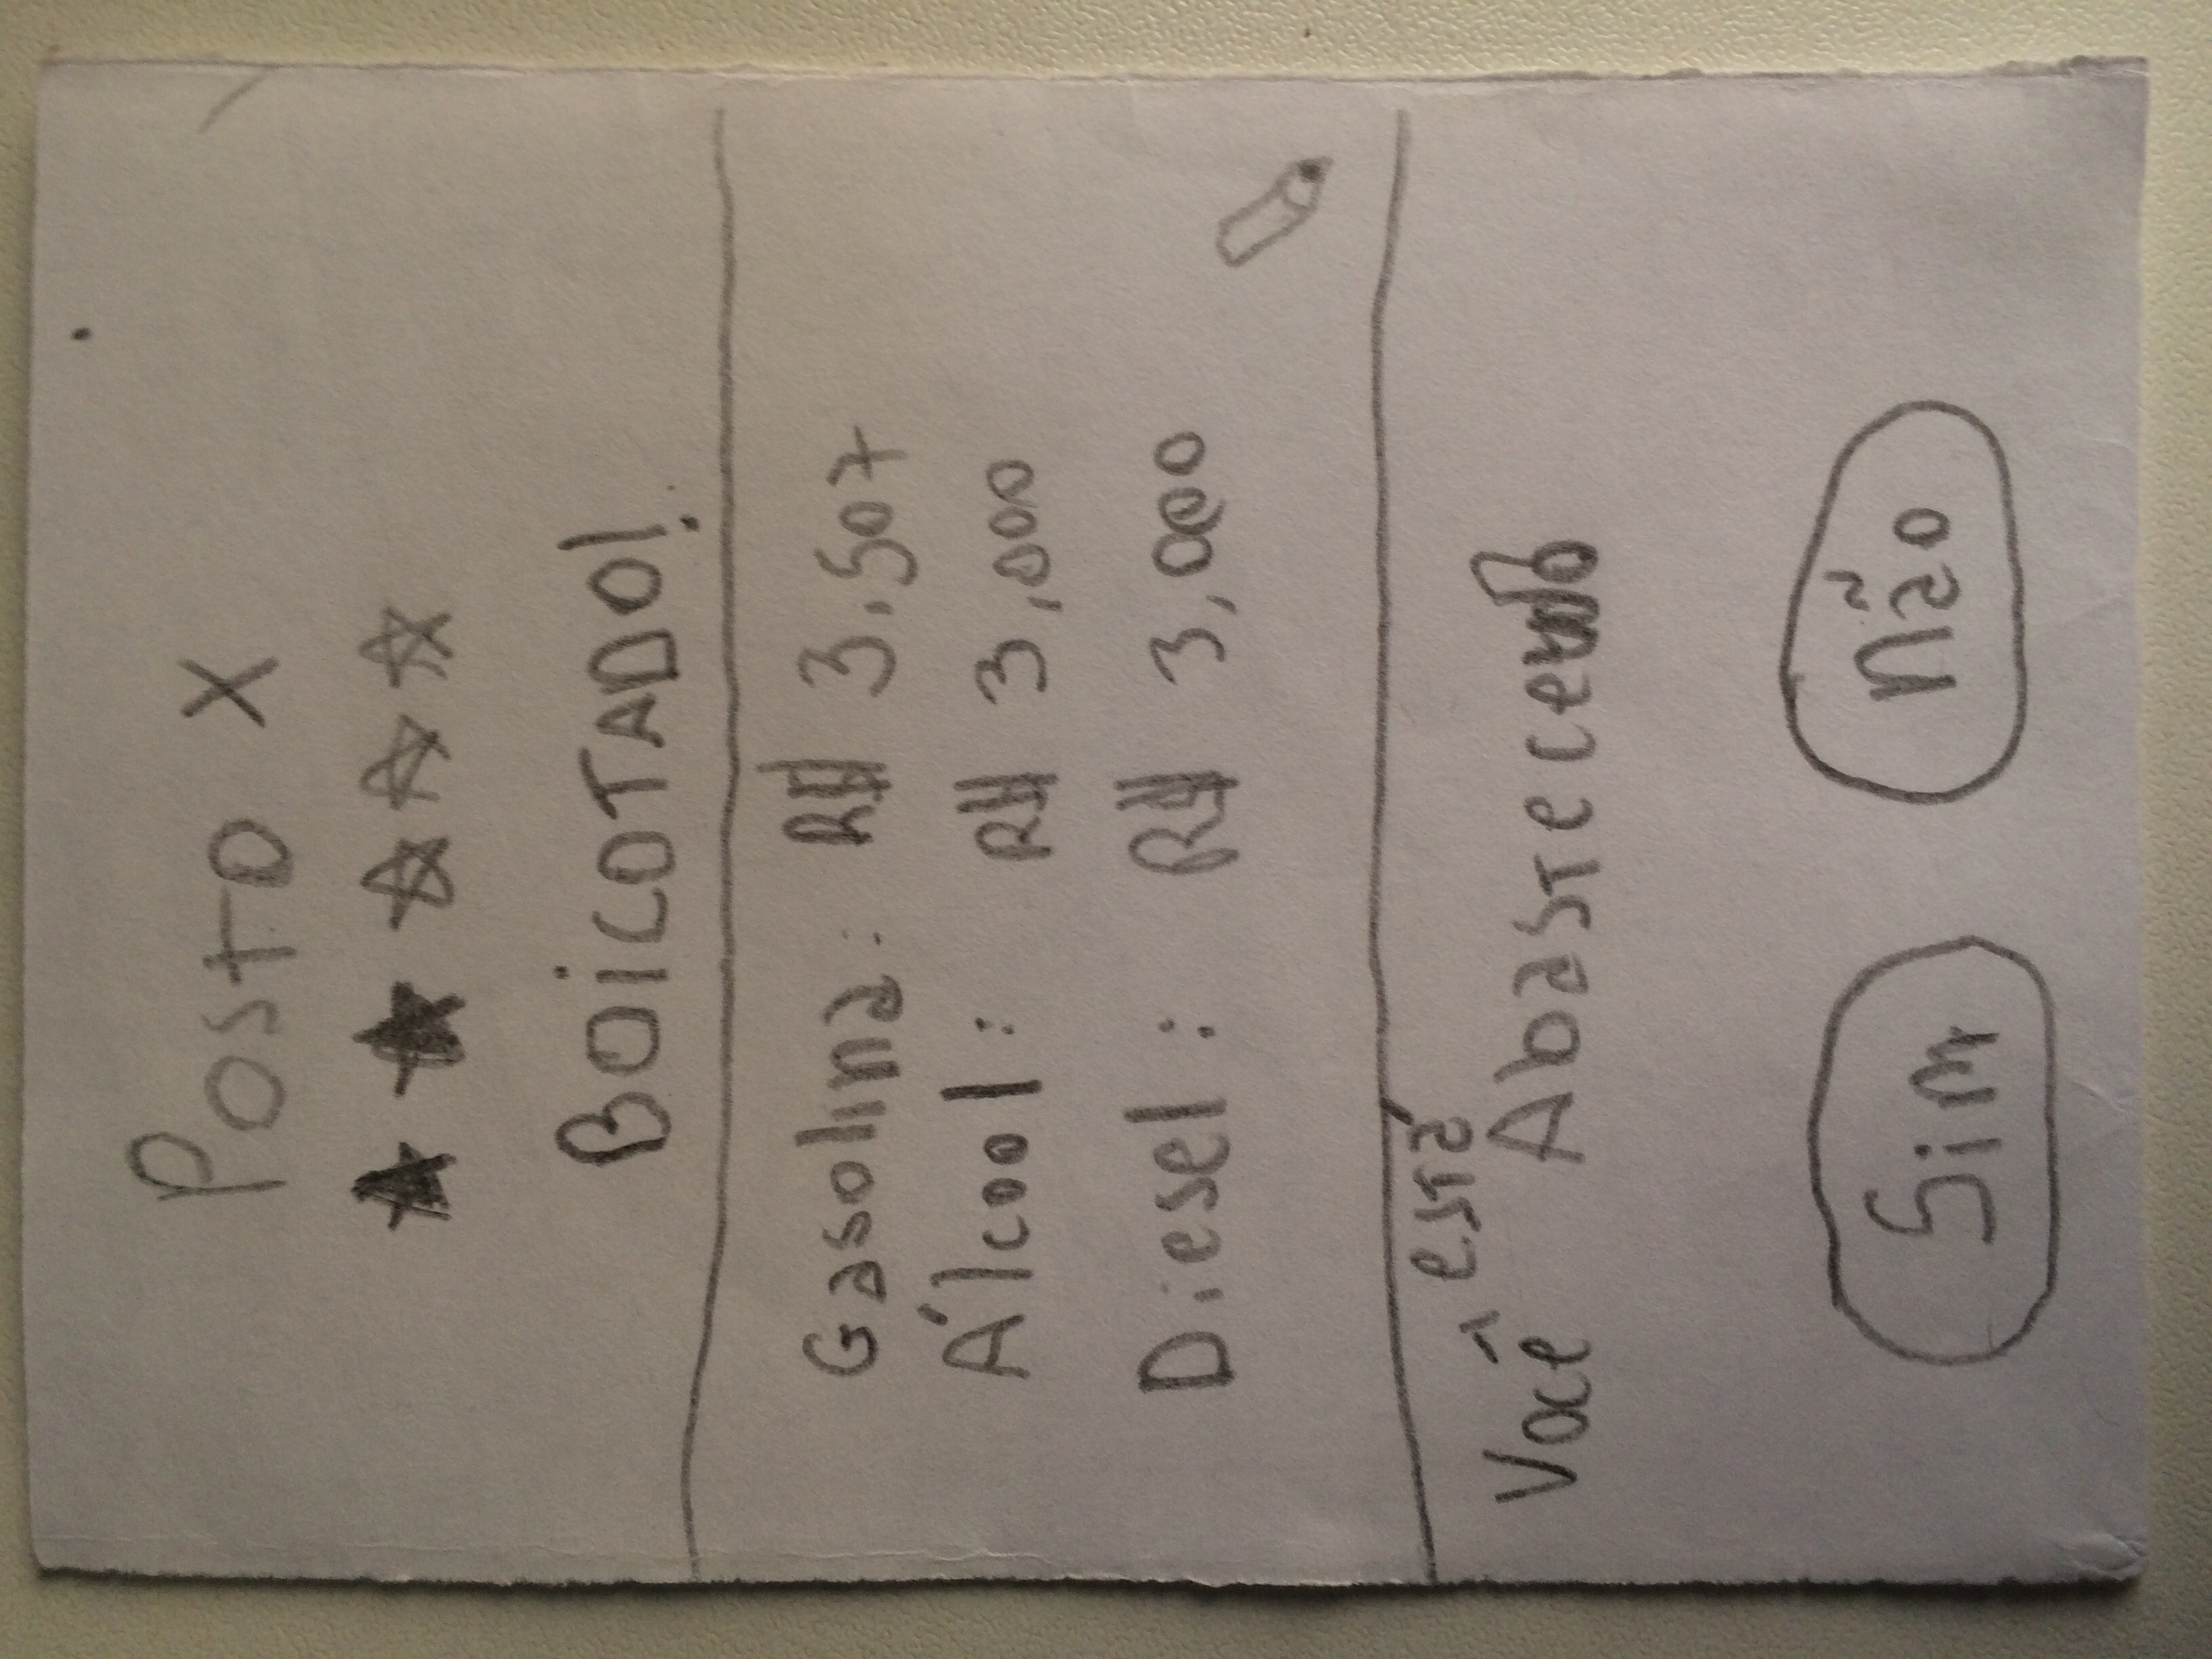 Posto X
BOiCOTADO!
Gasolina: R$ 3.507
Álcool: R$ 3,000
Diesel: R$ 3,000
Você está Abastecendo
Sim não